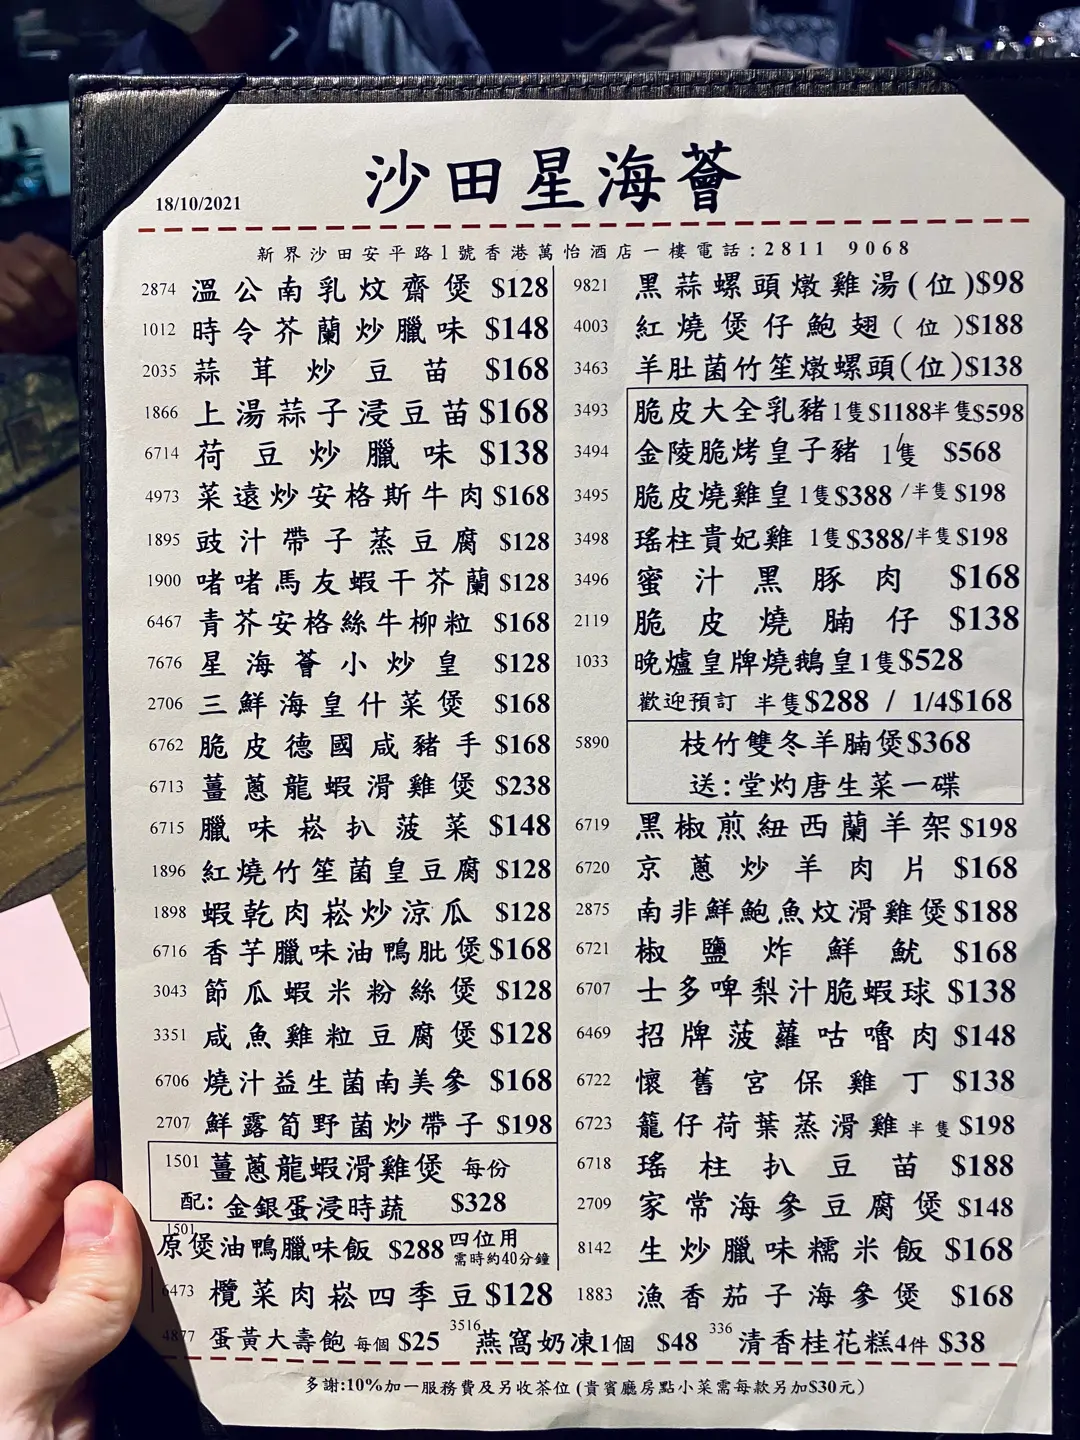 沙田星海薈
18/10/2021
新界沙田安平路1號香港萬怡酒店一樓電話:2811 9068
2874 溫公南乳炆齋煲 $128
1012 時令芥蘭炒臘味 $148
2035 蒜茸炒豆苗 $168
1866 上湯蒜子浸豆苗 $168
6714 荷豆炒臘味 $138
4973 菜遠炒安格斯牛肉 $168
1895 豉汁帶子蒸豆腐 $128
1900 啫啫馬友蝦干芥蘭 $128
6467 青芥安格絲牛柳粒 $168
7676 星海薈小炒皇 $128
2706 三鮮海皇什菜煲 $168
6762 脆皮德國咸豬手 $168
6713 薑蔥龍蝦滑雞煲 $238
6715 臘味崧扒菠菜 $148
1896 紅燒竹笙菌皇豆腐 $128
1898 蝦乾肉崧炒涼瓜 $128
6716 香芋臘味油鴨肶煲 $168
3043 節瓜蝦米粉絲煲 $128
3351 咸魚雞粒豆腐煲 $128
6706 燒汁益生菌南美參 $168
2707 鮮露筍野菌炒帶子 $198
1501 薑蔥龍蝦滑雞煲 每份
配: 金銀蛋浸時蔬 $328
1501
原煲油鴨臘味飯 $288 四位用
需時約40分鐘
6473 欖菜肉崧四季豆 $128
9821 黑蒜螺頭燉雞湯(位)$98
4003 紅燒煲仔鮑翅(位)$188
3463 羊肚菌竹笙燉螺頭(位)$138
3493 脆皮大全乳豬1隻$1188半隻$598
3494 金陵脆烤皇子豬 1隻 $568
3495 脆皮燒雞皇1隻$388 /半隻$198
3498 瑤柱貴妃雞 1隻$388/半隻$198
3496 蜜汁黑豚肉 $168
2119 脆皮燒腩仔 $138
1033 晚爐皇牌燒鵝皇1隻$528
歡迎預訂 半隻$288 / 1/4$168
5890 枝竹雙冬羊腩煲$368
送:堂灼唐生菜一碟
6719 黑椒煎紐西蘭羊架 $198
6720 京蔥炒羊肉片 $168
2875 南非鮮鮑魚炆滑雞煲 $188
6721 椒鹽炸鮮魷 $168
6707 士多啤梨汁脆蝦球 $138
6469 招牌菠蘿咕嚕肉 $148
6722 懷舊宮保雞丁 $138
6723 籠仔荷葉蒸滑雞 半隻 $198
6718 瑤柱扒豆苗 $188
2709 家常海參豆腐煲 $148
8142 生炒臘味糯米飯 $168
1883 漁香茄子海參煲 $168
4877 蛋黃大壽飽 每個 $25 3516 燕窩奶凍1個 $48 336 清香桂花糕4件 $38
多謝:10%加一服務費及另收茶位 (貴賓廳房點小菜需每款另加$30元)